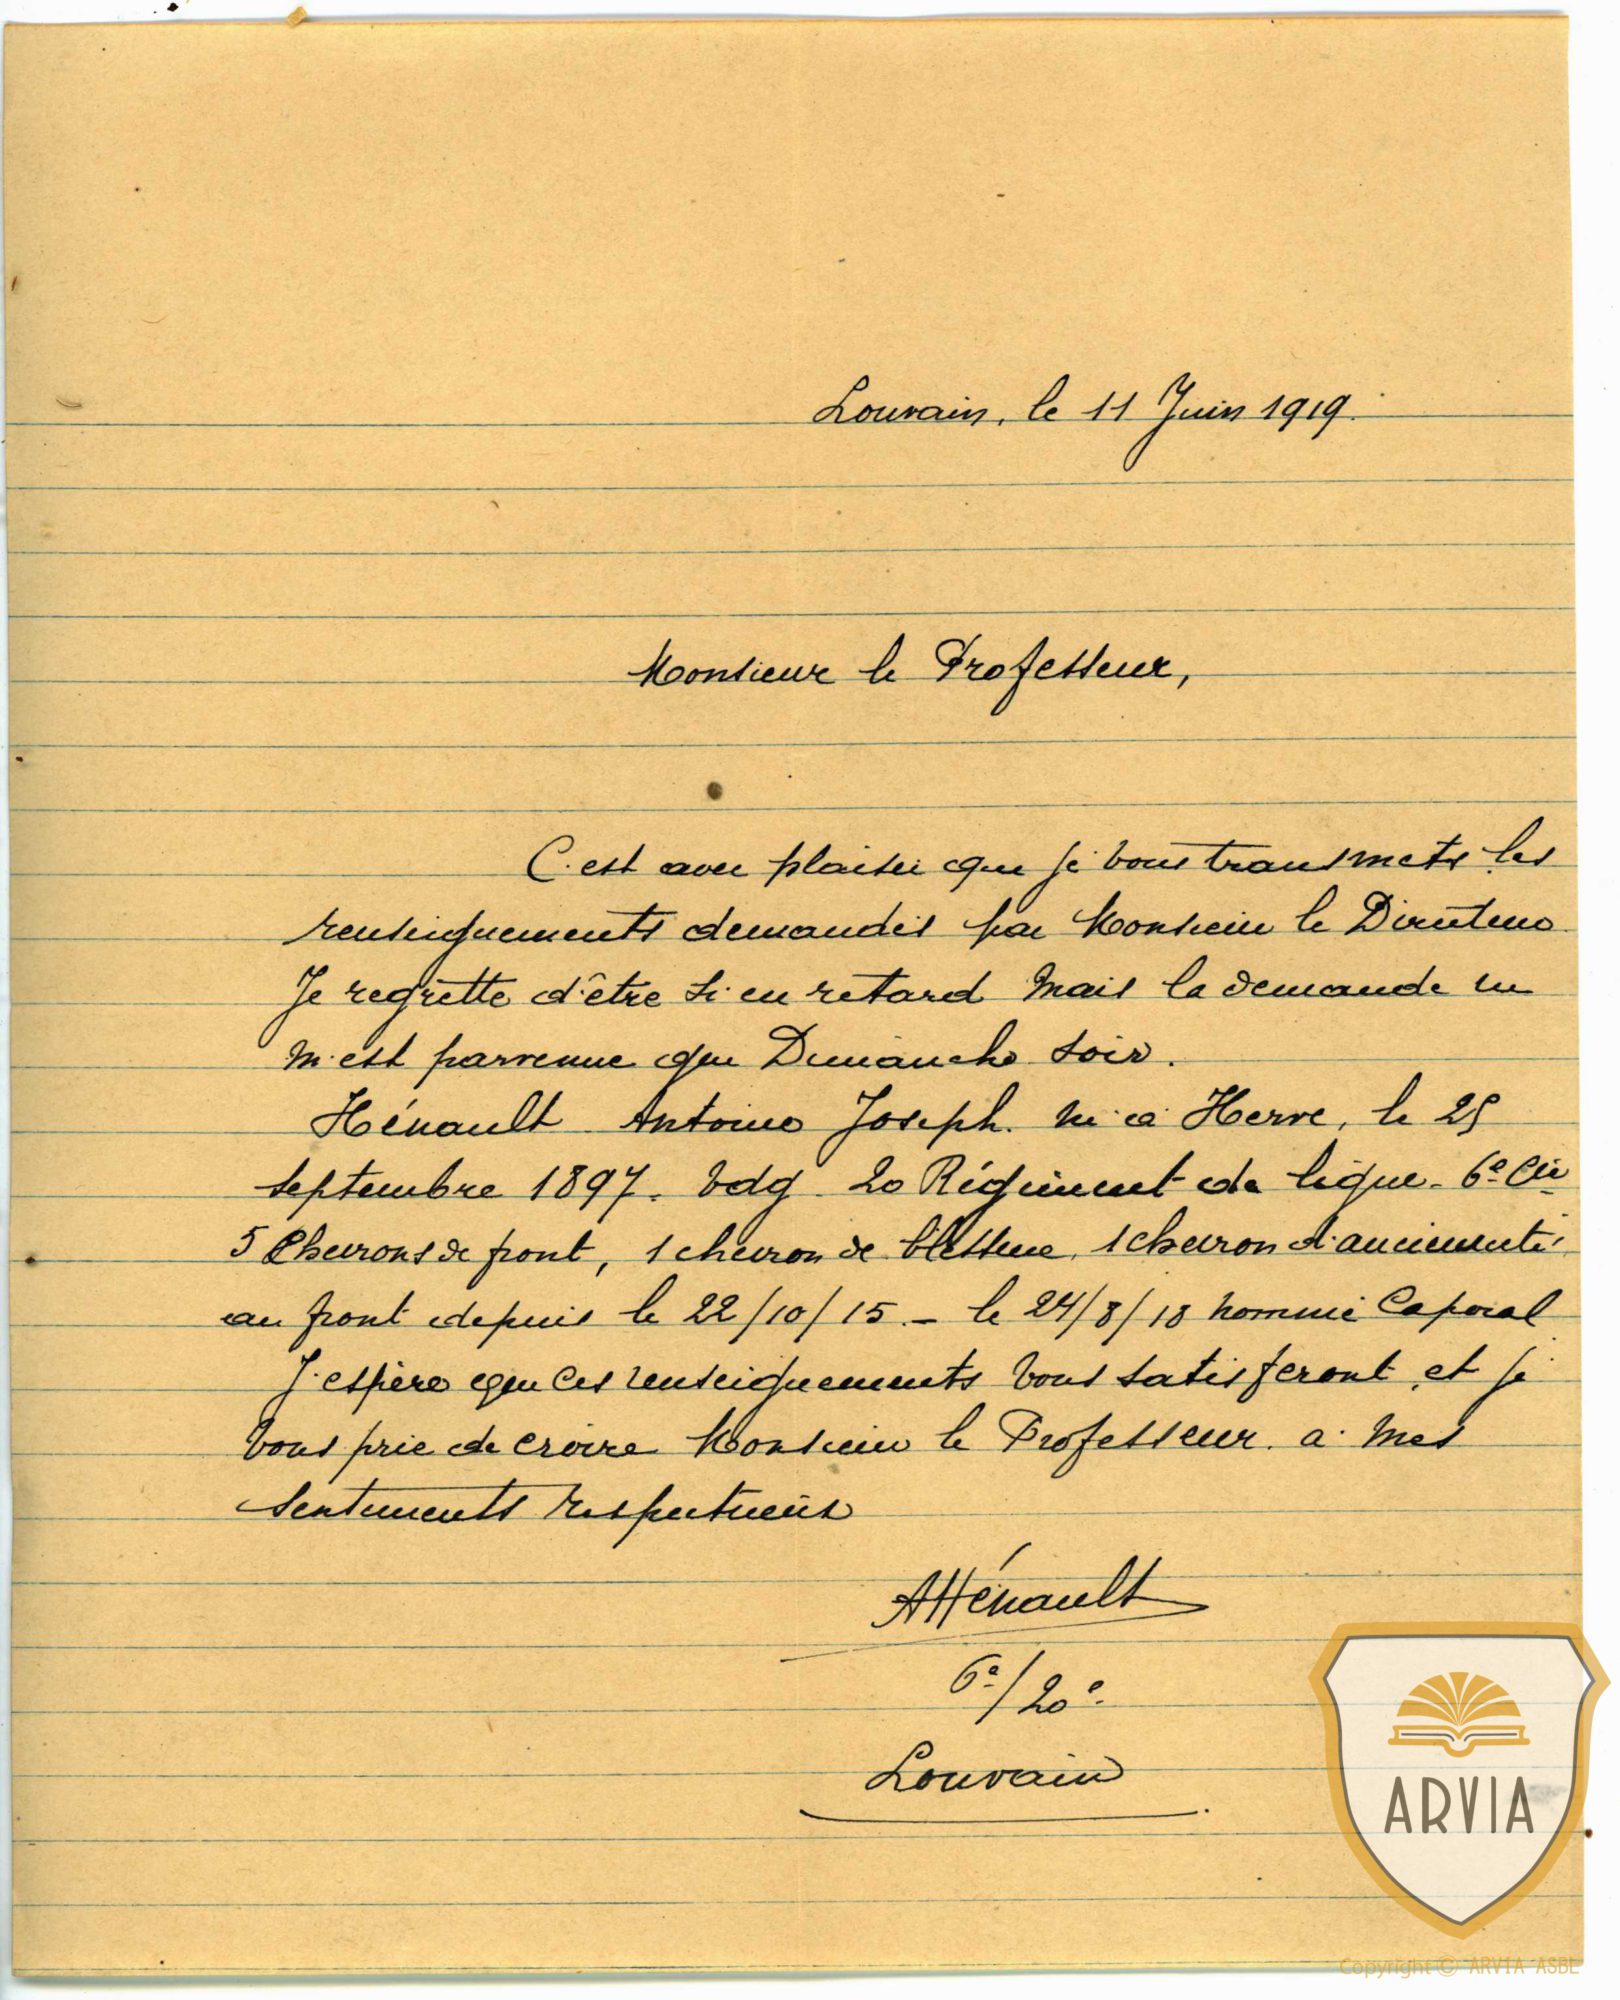 Louvain, le 11 Juin 1919.
Monsieur le Professeur,
C'est avec plaisir que je vous transmets les
renseignements demandés par Monsieur le Directeur
Je regrette d'être si en retard mais la demande ne
m'est parvenue que Dimanche soir.
Hénault Antoine Joseph. né à Herve, le 25
septembre 1897. vdg 20 Régiment de ligne. 6e Cie
5 Chevrons de front, 1 chevron de blessure, 1 chevron d'ancienneté
au front depuis le 22/10/15. - le 24/8/18 nommé Caporal
J'espère que ces renseignements vous satisferont et je
vous prie de croire Monsieur le Professeur. à mes
sentiments respectueux
AHénault
6e/20e
Louvain
ARVIA
Copyright © ARVIA ASBL